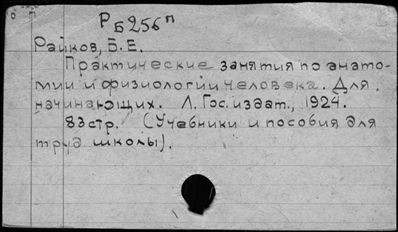 РБ256п
Райков, Б. Е.
Практические занятия по анато-
мии и физиологии человека. Для
начинающих. Л. Гос. издат., 1924.
83 стр. (Учебники и пособия для
труд школы).